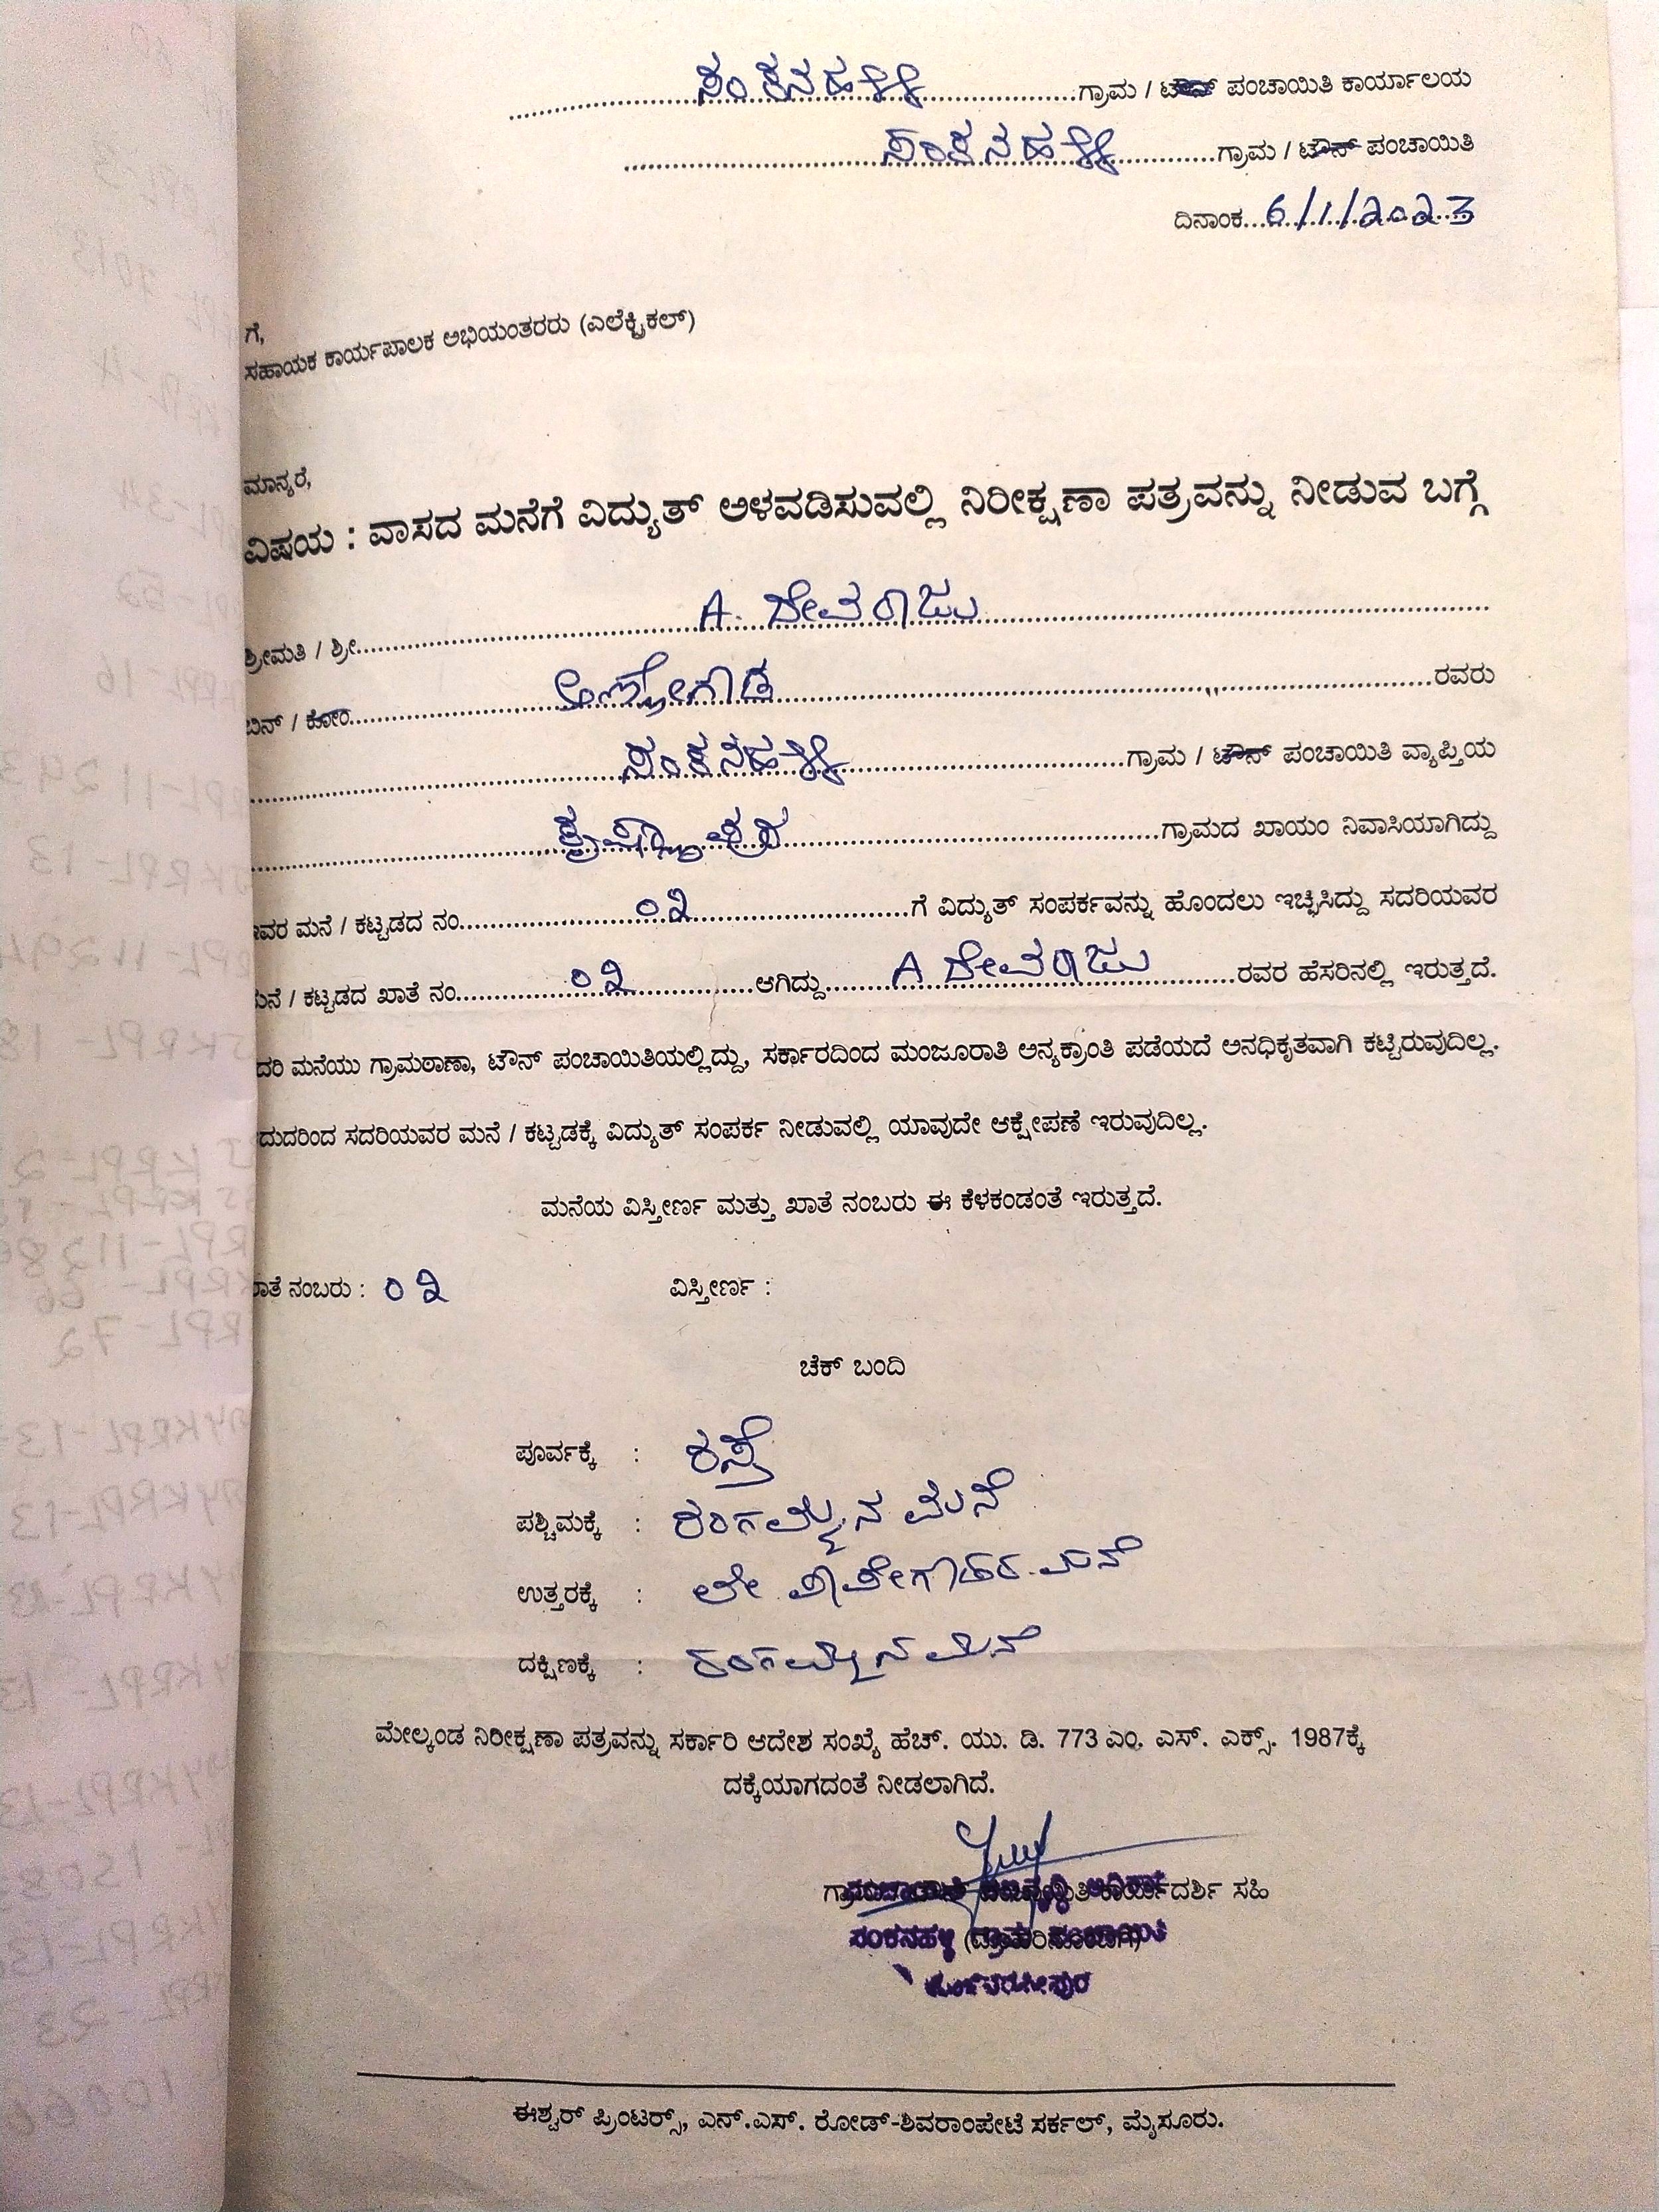 ಸಂಕನಹಳ್ಳಿ ಗ್ರಾಮ / ಟೌನ್ ಪಂಚಾಯಿತಿ ಕಾರ್ಯಾಲಯ
ಸಂಕನಹಳ್ಳಿ ಗ್ರಾಮ / ಟೌನ್ ಪಂಚಾಯಿತಿ
ದಿನಾಂಕ 6/1/2023
ಗೆ,
ಸಹಾಯಕ ಕಾರ್ಯಪಾಲಕ ಅಭಿಯಂತರರು (ಎಲೆಕ್ಟ್ರಿಕಲ್)
ಮಾನ್ಯರೆ,
ವಿಷಯ : ವಾಸದ ಮನೆಗೆ ವಿದ್ಯುತ್ ಅಳವಡಿಸುವಲ್ಲಿ ನಿರೀಕ್ಷಣಾ ಪತ್ರವನ್ನು ನೀಡುವ ಬಗ್ಗೆ
ಶ್ರೀಮತಿ / ಶ್ರೀ A. ದೇವರಾಜು
ಬಿನ್ / ಕೋಂ ಅಣ್ಣೇಗೌಡ ರವರು
ಸಂಕನಹಳ್ಳಿ ಗ್ರಾಮ / ಟೌನ್ ಪಂಚಾಯಿತಿ ವ್ಯಾಪ್ತಿಯ
ಕೃಷ್ಣಾಪುರ ಗ್ರಾಮದ ಖಾಯಂ ನಿವಾಸಿಯಾಗಿದ್ದು
ಇವರ ಮನೆ / ಕಟ್ಟಡದ ನಂ ೦೩ ಗೆ ವಿದ್ಯುತ್ ಸಂಪರ್ಕವನ್ನು ಹೊಂದಲು ಇಚ್ಛಿಸಿದ್ದು ಸದರಿಯವರ
ಮನೆ / ಕಟ್ಟಡದ ಖಾತೆ ನಂ ೦೩ ಆಗಿದ್ದು A ದೇವರಾಜು ರವರ ಹೆಸರಿನಲ್ಲಿ ಇರುತ್ತದೆ.
ದರಿ ಮನೆಯು ಗ್ರಾಮಠಾಣಾ, ಟೌನ್ ಪಂಚಾಯಿತಿಯಲ್ಲಿದ್ದು, ಸರ್ಕಾರದಿಂದ ಮಂಜೂರಾತಿ ಅನ್ಯಕ್ರಾಂತಿ ಪಡೆಯದೆ ಅನಧಿಕೃತವಾಗಿ ಕಟ್ಟಿರುವುದಿಲ್ಲ.
ದುದರಿಂದ ಸದರಿಯವರ ಮನೆ / ಕಟ್ಟಡಕ್ಕೆ ವಿದ್ಯುತ್ ಸಂಪರ್ಕ ನೀಡುವಲ್ಲಿ ಯಾವುದೇ ಆಕ್ಷೇಪಣೆ ಇರುವುದಿಲ್ಲ.
ಮನೆಯ ವಿಸ್ತೀರ್ಣ ಮತ್ತು ಖಾತೆ ನಂಬರು ಈ ಕೆಳಕಂಡಂತೆ ಇರುತ್ತದೆ.
ಖಾತೆ ನಂಬರು : ೦೩ ವಿಸ್ತೀರ್ಣ :
ಚೆಕ್ ಬಂದಿ
ಪೂರ್ವಕ್ಕೆ : ರಸ್ತೆ
ಪಶ್ಚಿಮಕ್ಕೆ : ರಂಗಮ್ಮನ ಮನೆ
ಉತ್ತರಕ್ಕೆ : ಲೇ ಮನೆ
ದಕ್ಷಿಣಕ್ಕೆ : ರಂಗಮ್ಮನ ಮನೆ
ಮೇಲ್ಕಂಡ ನಿರೀಕ್ಷಣಾ ಪತ್ರವನ್ನು ಸರ್ಕಾರಿ ಆದೇಶ ಸಂಖ್ಯೆ ಹೆಚ್. ಯು. ಡಿ. 773 ಎಂ. ಎಸ್. ಎಕ್ಸ್. 1987ಕ್ಕೆ
ದಕ್ಕೆಯಾಗದಂತೆ ನೀಡಲಾಗಿದೆ.
ಕಾರ್ಯದರ್ಶಿ ಸಹಿ
ಸಂಕನಹಳ್ಳಿ ಗ್ರಾಮ ಪಂಚಾಯಿತಿ
ಈಶ್ವರ್ ಪ್ರಿಂಟರ್ಸ್, ಎನ್.ಎಸ್. ರೋಡ್-ಶಿವರಾಂಪೇಟೆ ಸರ್ಕಲ್, ಮೈಸೂರು.